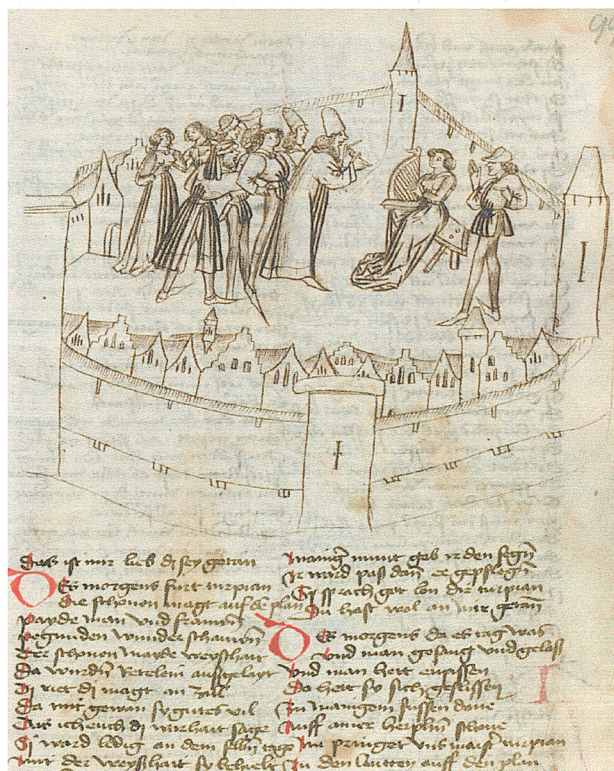 Das ist mir lieb di sey getan
Des morgens furt turpian
Die schonen magt auf dē plan
Payde man vnd frawen
Begunden wunder schawen
Der schonen mayde weyshait
Da wurdn̄ retelein aufgelayt
Di riet di magt an zal
Da mit gewan sy gutes vil
Als ich euch di warhait sage
Si ward ledig an dem selbn̄ tage
Mit der weyshait sy behielt
Manig̾ munt gab ir den segn̄
Ir wird pas dan̄ ee gepflegn̄
Si sprach got lon dir turpian
Du hast wol an mir getan
Des morgens da es tag was
Vnd man gesang vnd gelas
Vnd man hett enpissen
Do hett sy sich geflissen
In mangem sussen done
Auff ainer herpfin schone
pringet vns maist̾ turpian
In den lutten auff den plan